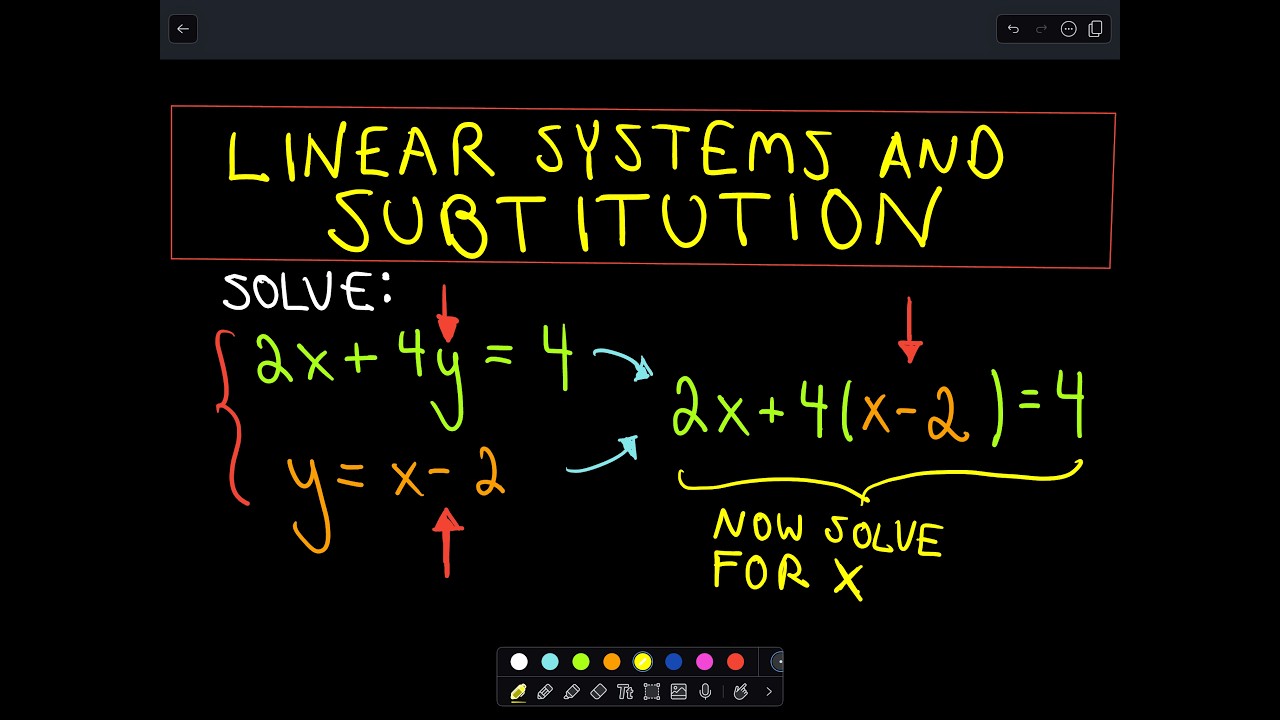 LINEAR SYSTEMS AND
SUBTITUTION
SOLVE:
2x + 4y = 4
y = x - 2
2x + 4(x - 2) = 4
NOW SOLVE
FOR X
Tt